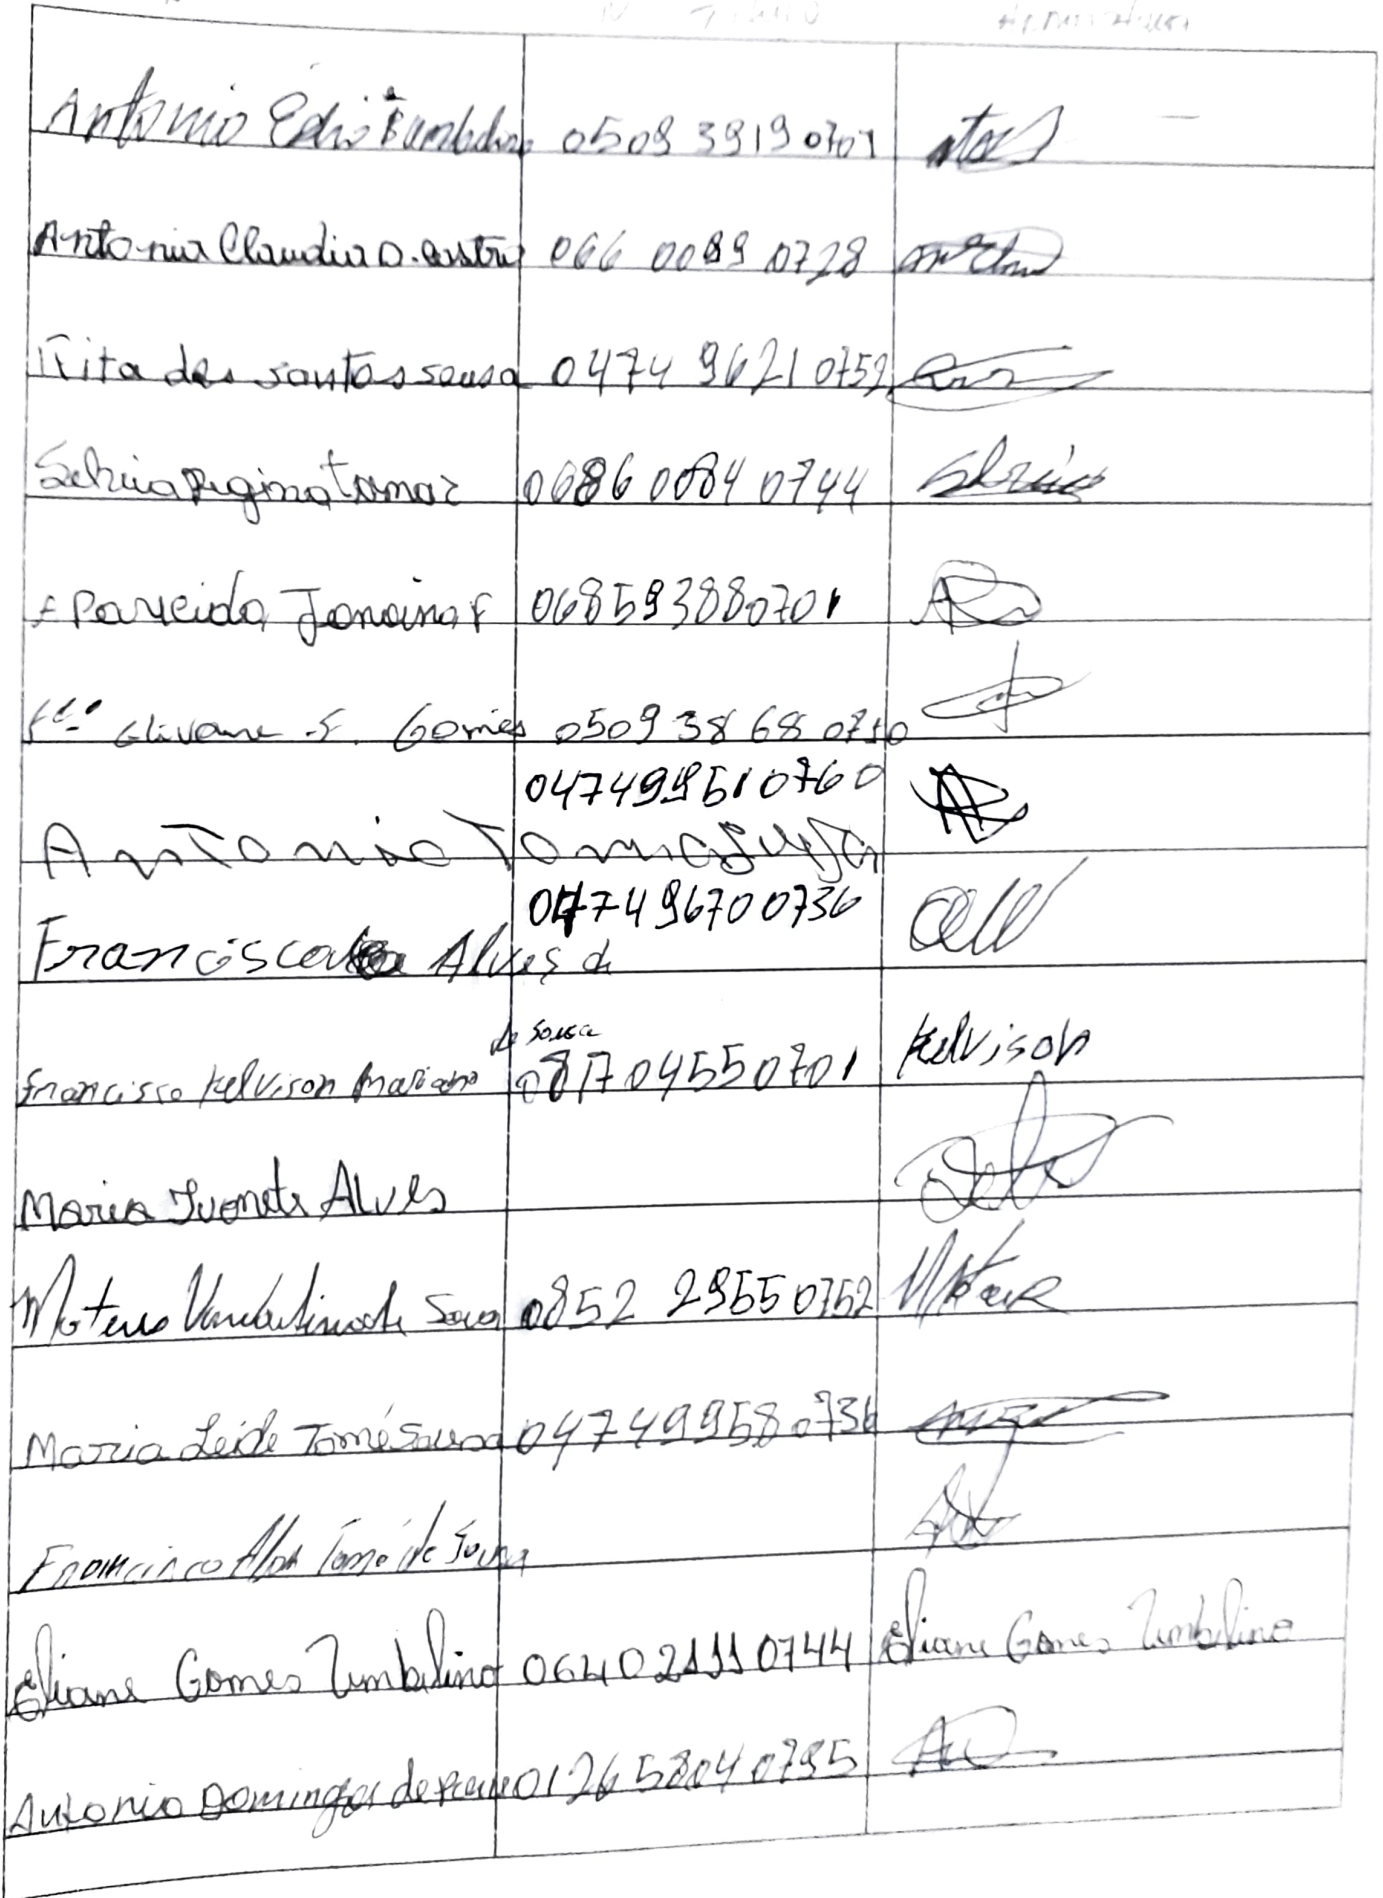 Antonio Edio Bambelino 0509 3919 0701
Antonia Claudia D. Castro 066 0089 0728
Rita dos santos sousa 0474 9621 0752
Selvia Regina Tomaz 0686 0084 0744 Selvia
Aparecida Janaina F 068593880701
Fco Glivane S. Gomes 0509 38 68 0710
047499510760
Antonio Toma
047496700736
Francisca Alves de
de Sousa Kelvison
Francisco Kelvison Mariano 081704550701
Maria Ivonete Alves
Mateus Vambelino de Sousa 0852 29550752 Mateus
Maria Leide Tomé Sousa 047499580736
Francisco Alan Tomé de Sousa
Eliane Gomes Umbelino 064021110744 Eliane Gomes Umbelino
Antonio Domingos de 012658040795